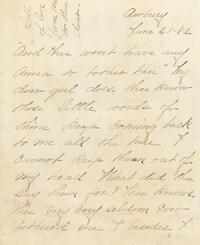 Awbury
June 21. 82
"And thee won't have any
Anna to bother thee" My
dear girl does thee know
those little words of
thine keep coming back
to me all the time. I
cannot keep them out of
my head. What did thee
say them for? Thee knows
thee very very seldom ever
bothered me & besides I